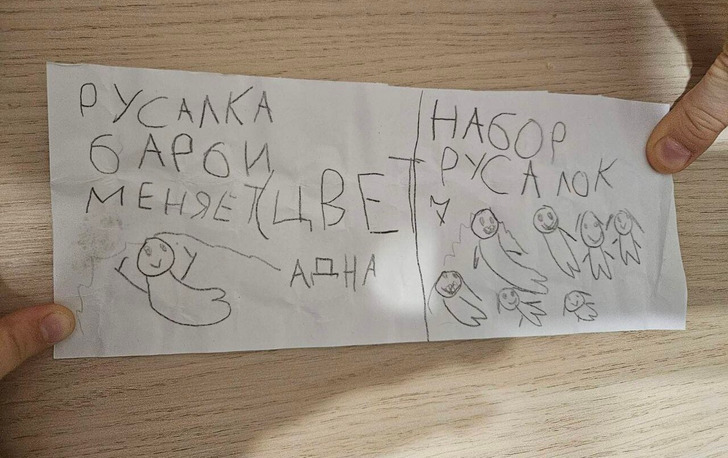 РУСАЛКА
БАРБИ
МЕНЯЕТ ЦВЕТ
АДНА
НАБОР
РУСАЛОК
7